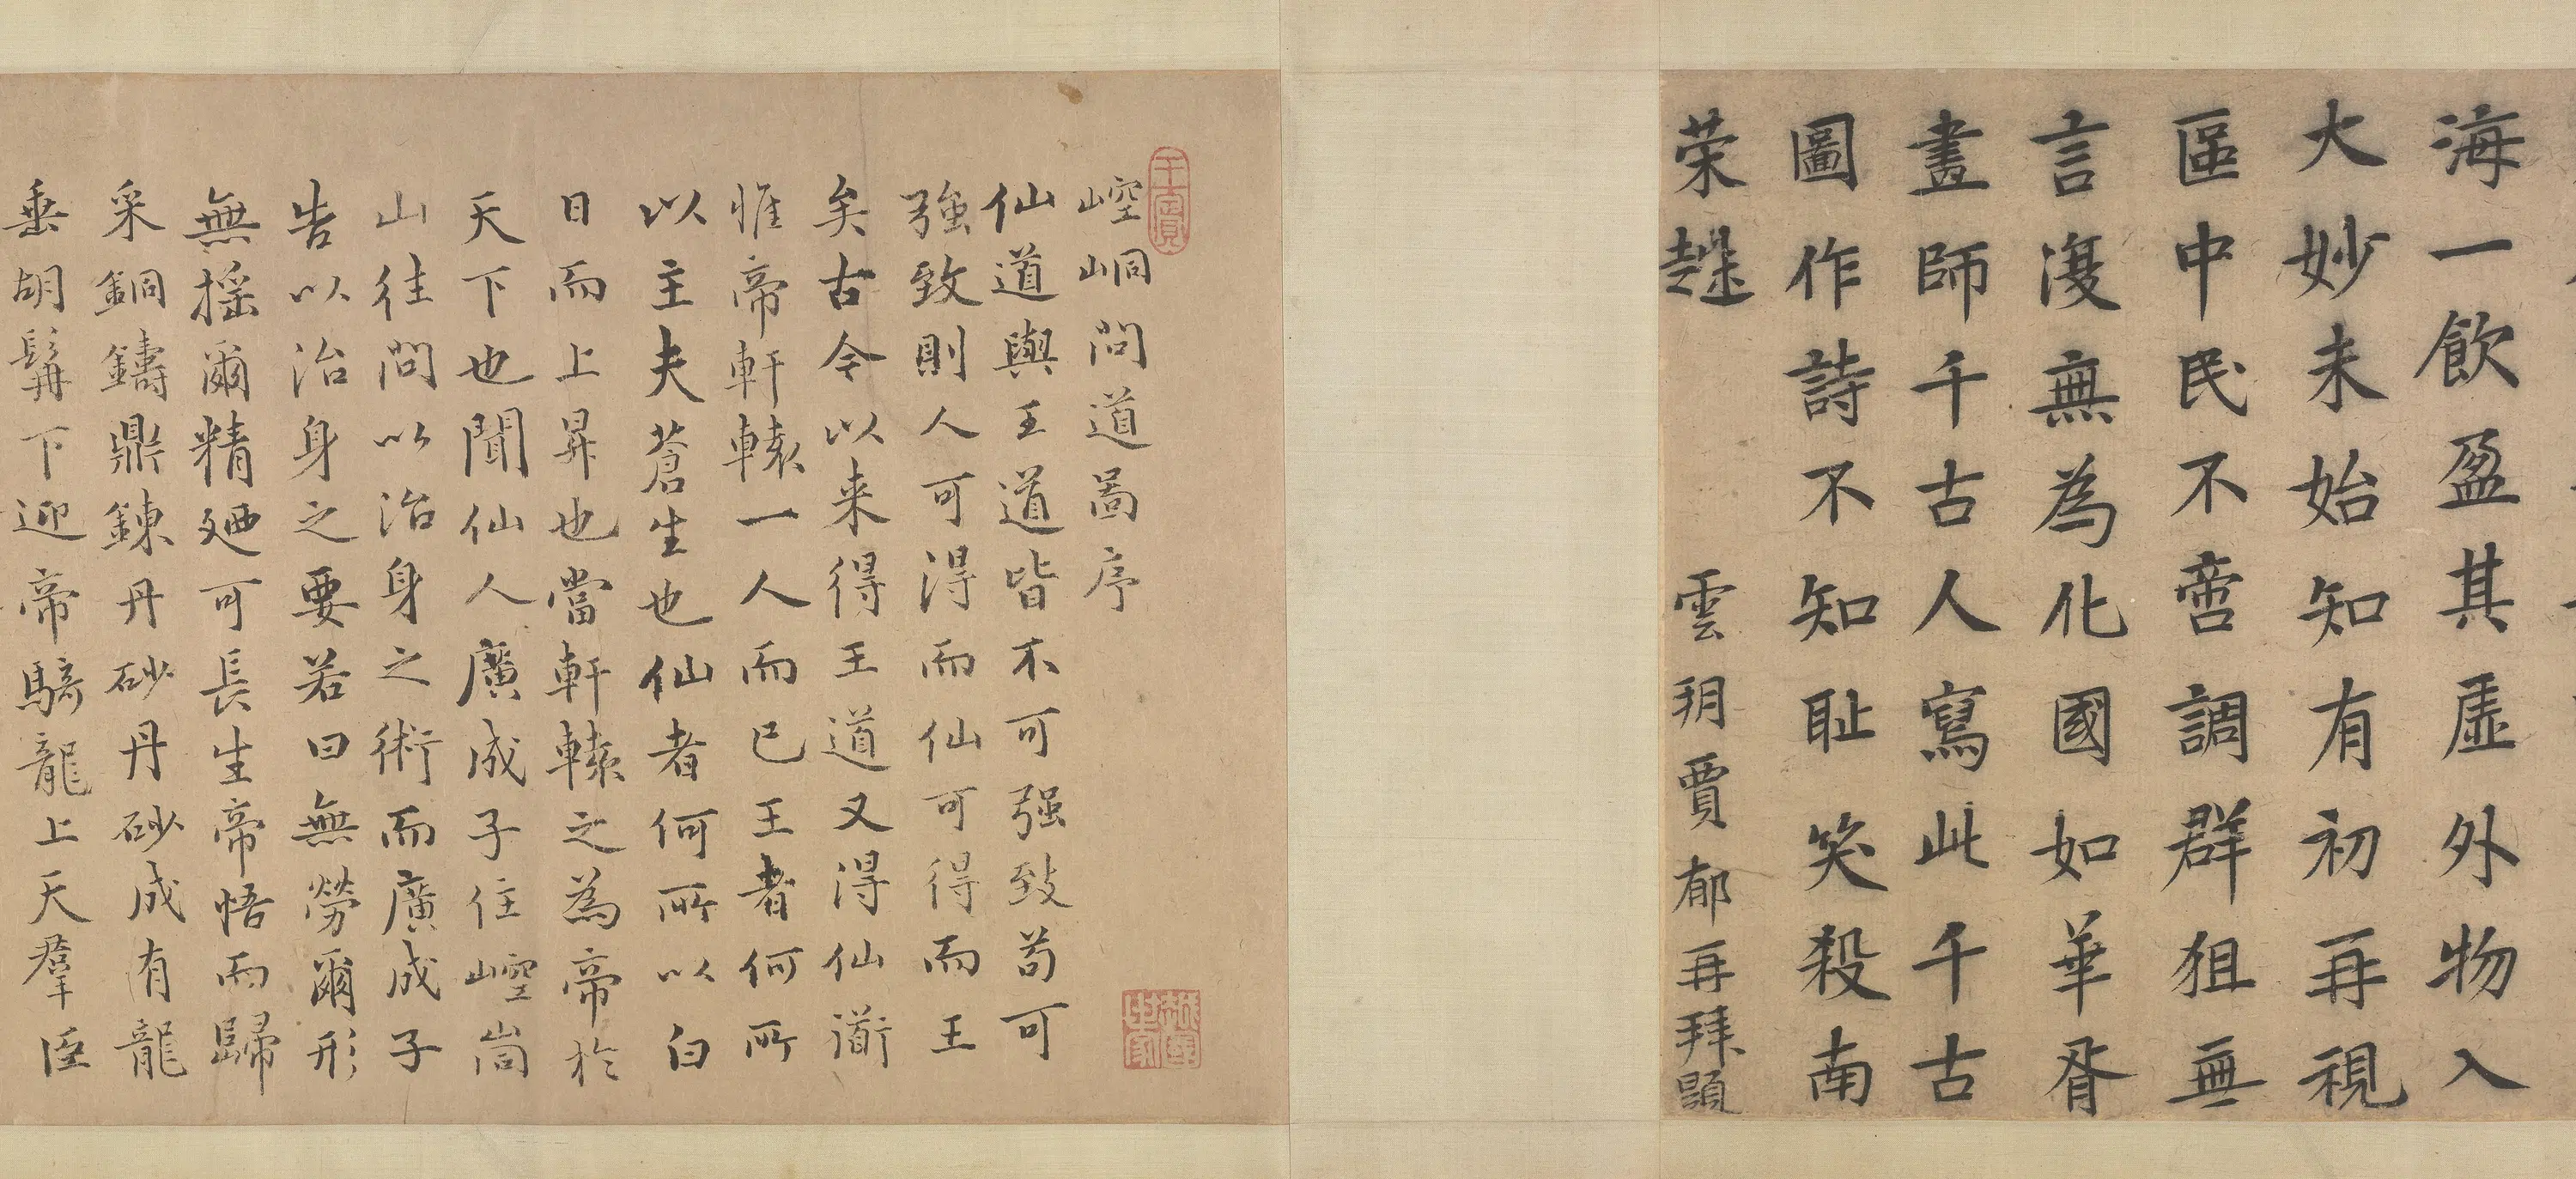 海一飲盈其虛外物入
大妙未始知有初再視
區中民不啻調群狙無
言澓無為化國如華胥
畫師千古人寫此千古
圖作詩不知恥笑殺南
荣趎
雲玥賈郁再拜題
崆峒問道啚序
仙道與王道皆不可强致苟可
強致則人可得而仙可得而王
矣古今以来得王道又得仙衜
惟帝軒轅一人而已王者何所
以主夫蒼生也仙者何所以白
日而上昇也當軒轅之為帝於
天下也聞仙人廣成子住崆峝
山往問以治身之術而廣成子
告以治身之要若曰無勞爾形
無揺爾精廼可長生帝悟而歸
采銅鑄鼎鍊丹砂丹砂成有龍
垂胡髯下迎帝騎龍上天羣臣